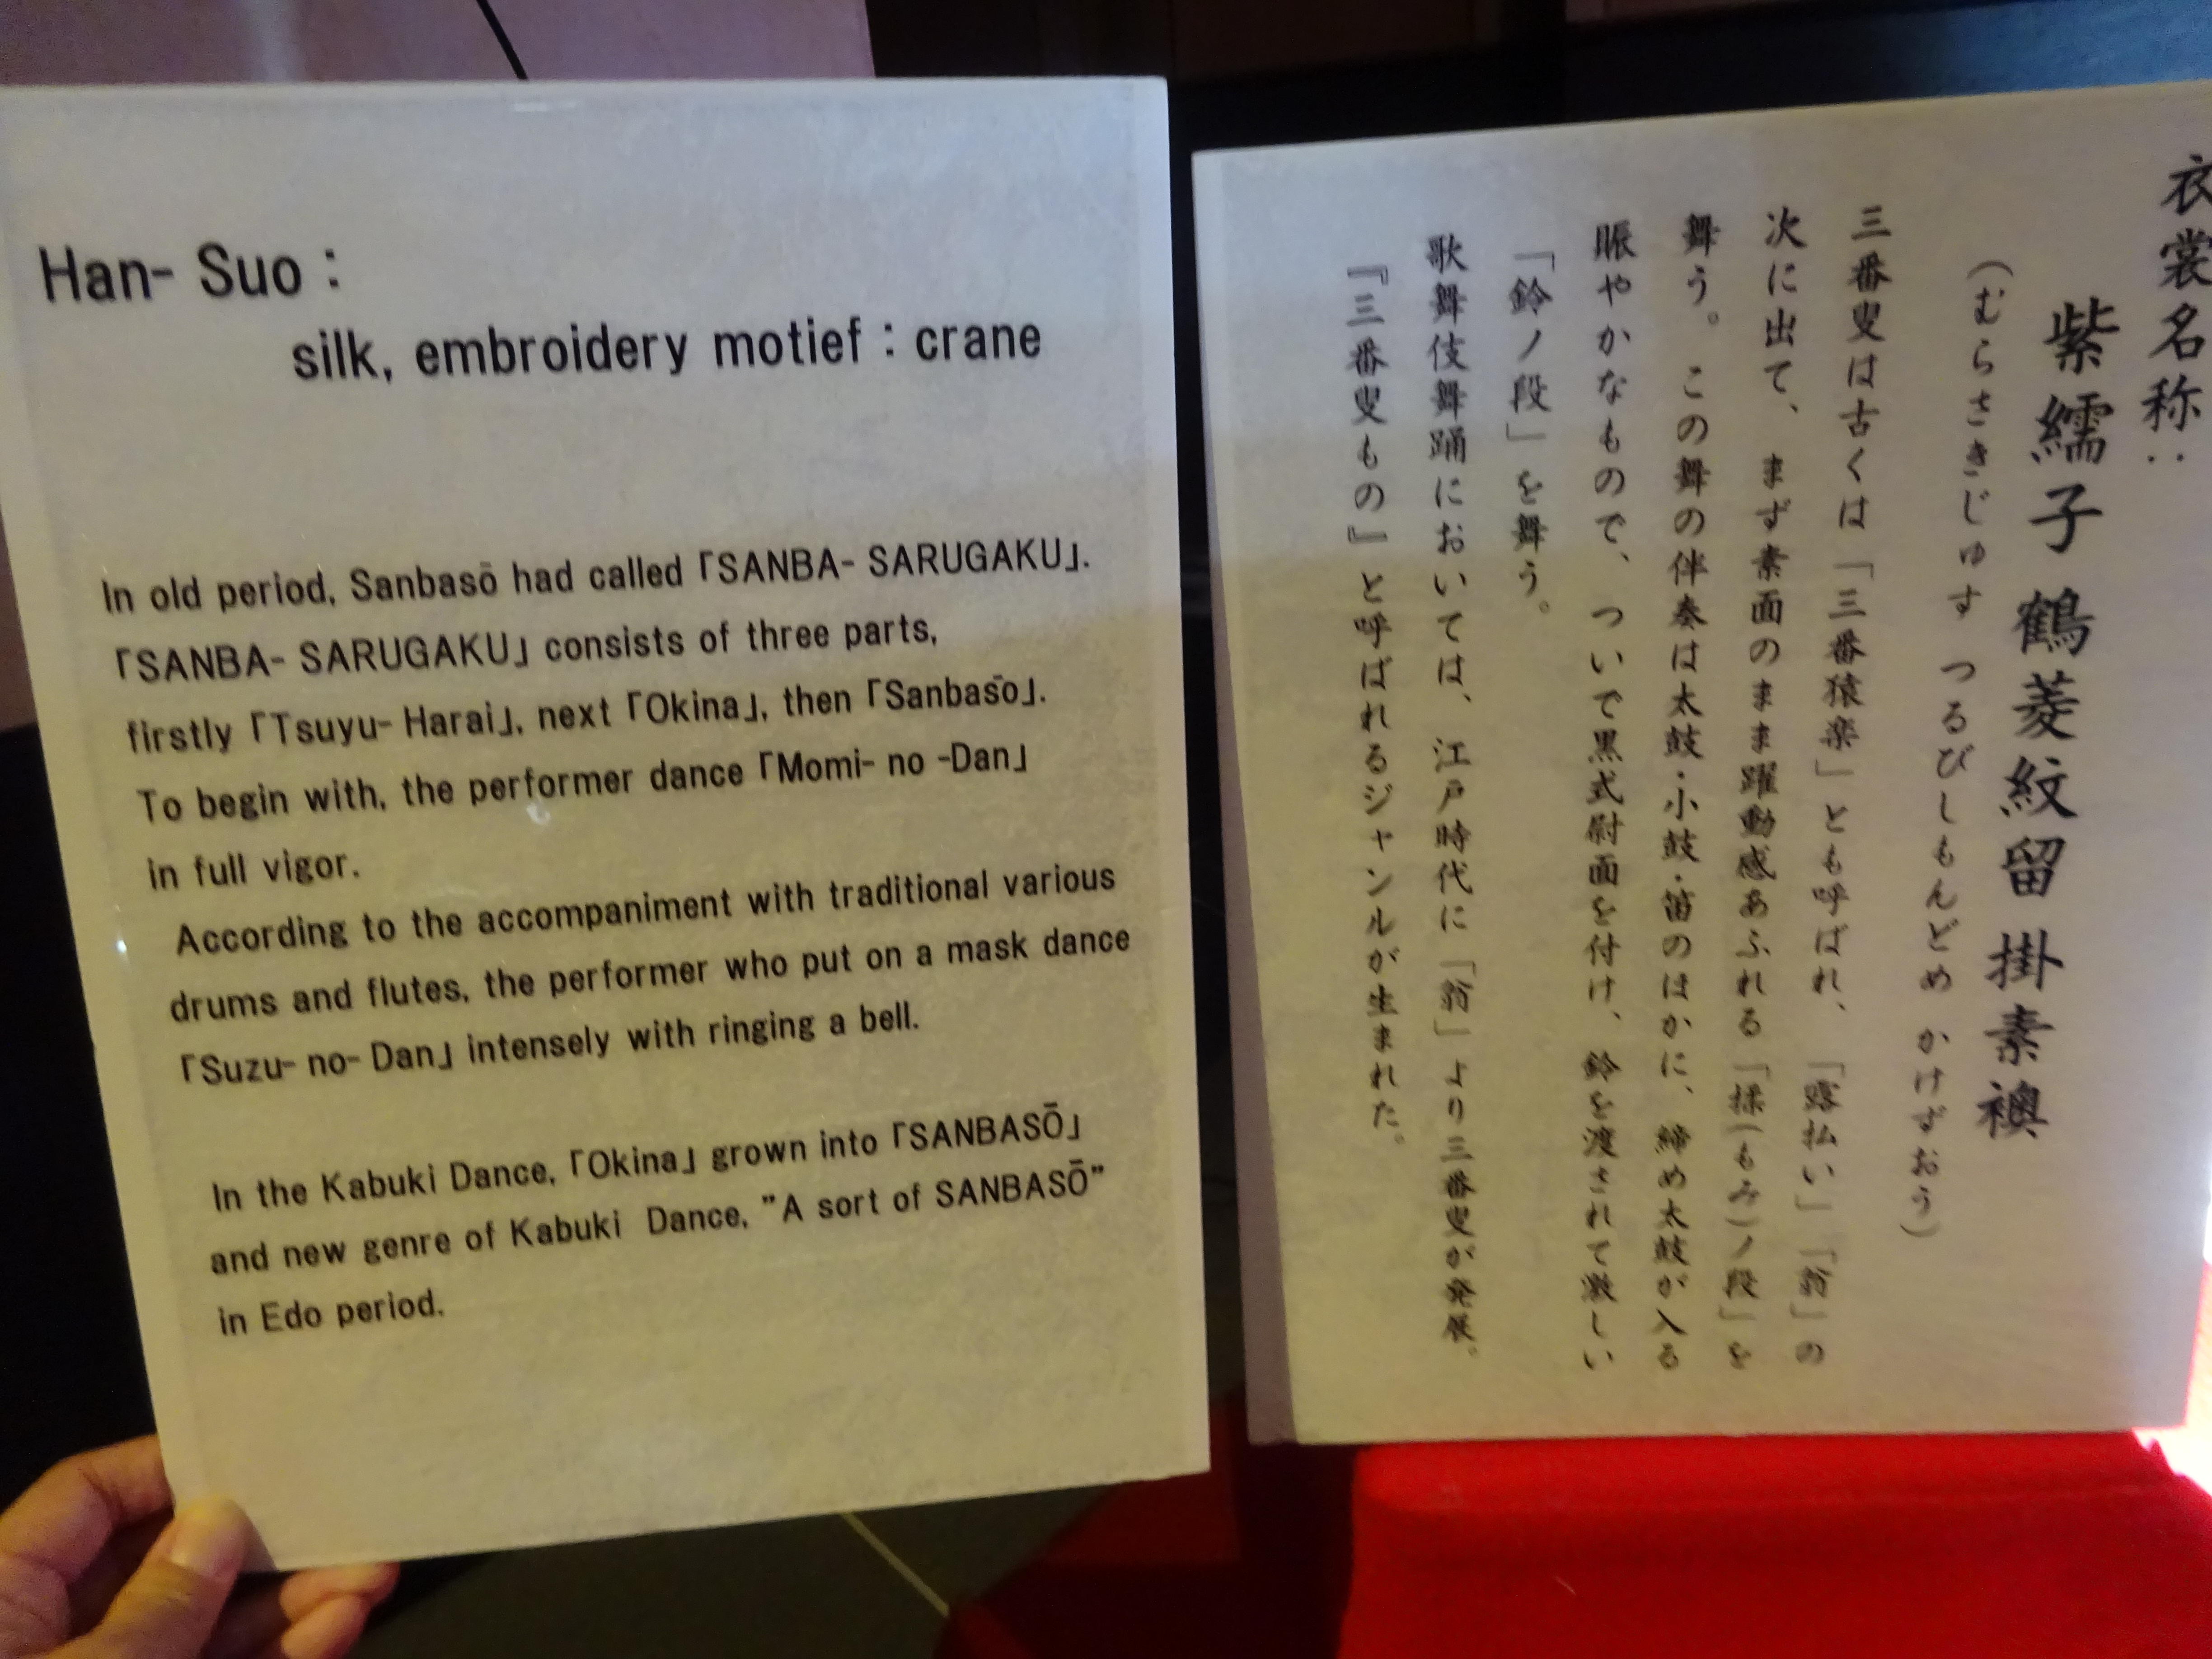 Han- Suo :
silk, embroidery motief : crane
In old period, Sanbasō had called「SANBA- SARUGAKU」.
「SANBA- SARUGAKU」consists of three parts,
firstly「Tsuyu- Harai」, next「Okina」, then「Sanbasō」.
To begin with, the performer dance「Momi- no -Dan」
in full vigor.
According to the accompaniment with traditional various
drums and flutes, the performer who put on a mask dance
「Suzu- no- Dan」intensely with ringing a bell.
In the Kabuki Dance,「Okina」grown into「SANBASŌ」
and new genre of Kabuki Dance, "A sort of SANBASŌ"
in Edo period.
衣裳名称:
紫繻子鶴菱紋留掛素襖
(むらさきじゅす つるびしもんどめ かけずおう)
三番叟は古くは「三番猿楽」とも呼ばれ、「露払い」「翁」の
次に出て、まず素面のまま躍動感あふれる「揉(もみ)ノ段」を
舞う。この舞の伴奏は太鼓・小鼓・笛のほかに、締め太鼓が入る
賑やかなもので、ついで黒式尉面を付け、鈴を渡されて激しい
「鈴ノ段」を舞う。
歌舞伎舞踊においては、江戸時代に「翁」より三番叟が発展。
『三番叟もの』と呼ばれるジャンルが生まれた。